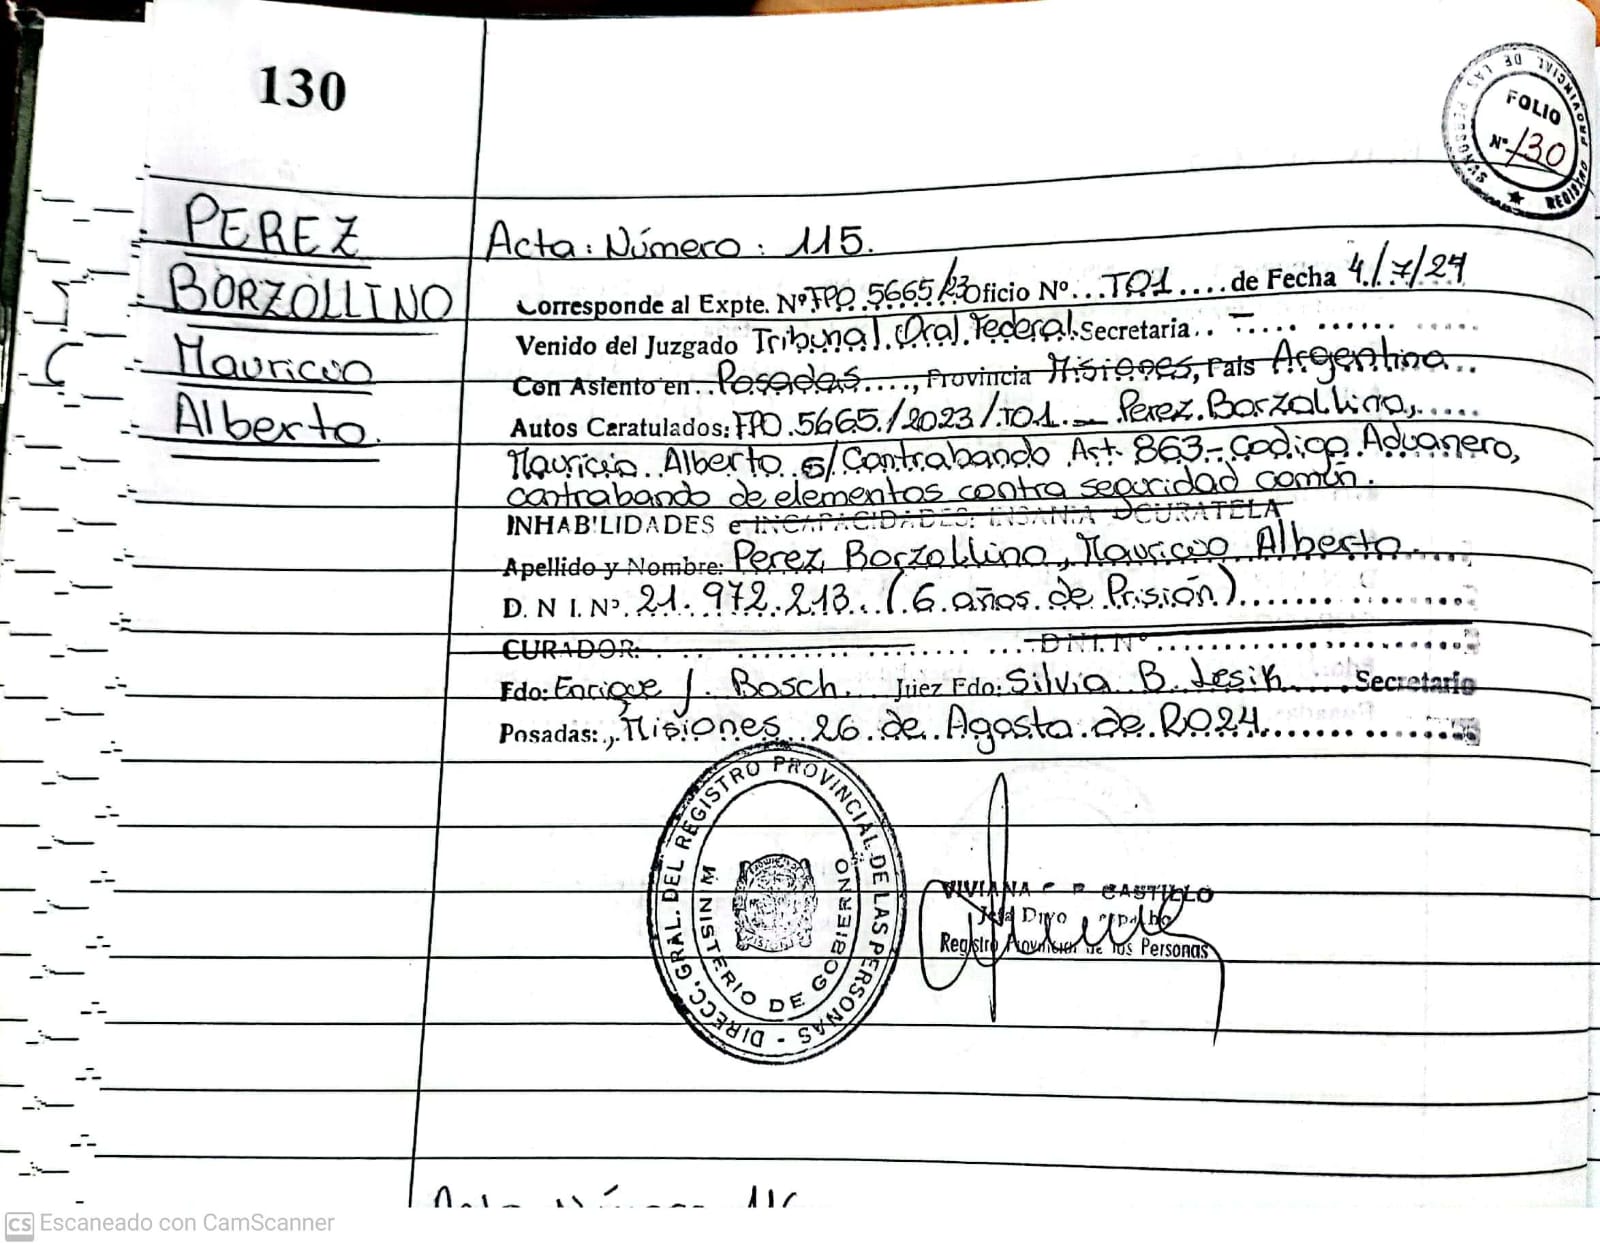 130
REGISTRO PROVINCIAL DE LAS PERSONAS
FOLIO
Nº 130
PEREZ
BORZOLLINO
Mauricio
Alberto
Acta: Número: 115.
Corresponde al Expte. Nº FPO 5665/23 Oficio Nº... TO1 .... de Fecha 4/7/24
Venido del Juzgado Tribunal Oral Federal. Secretaria..
Con Asiento en.. Posadas...., Provincia Misiones, Pais Argentina..
Autos Caratulados: FPO.5665./2023/TO1. — Perez Borzollino,
Mauricio Alberto s/ Contrabando Art. 863 - Codigo Aduanero,
contrabando de elementos contra seguridad común.
INHABILIDADES e INCAPACIDADES: INSANIA O CURATELA
Apellido y Nombre: Perez Borzollino, Mauricio Alberto
D. N I. Nº. 21.972.213.. (6 años de Prisión)
CURADOR: D N I. Nº
Fdo: Enrique J. Bosch. Juez Fdo: Silvia B. Lesik Secretario
Posadas:, Misiones 26 de Agosto de 2024
DIRECC. GRAL. DEL REGISTRO PROVINCIAL DE LAS PERSONAS -
MINISTERIO DE GOBIERNO
VIVIANA CASTILLO
Registro Provincial de las Personas
Acta Número 116
CS Escaneado con CamScanner